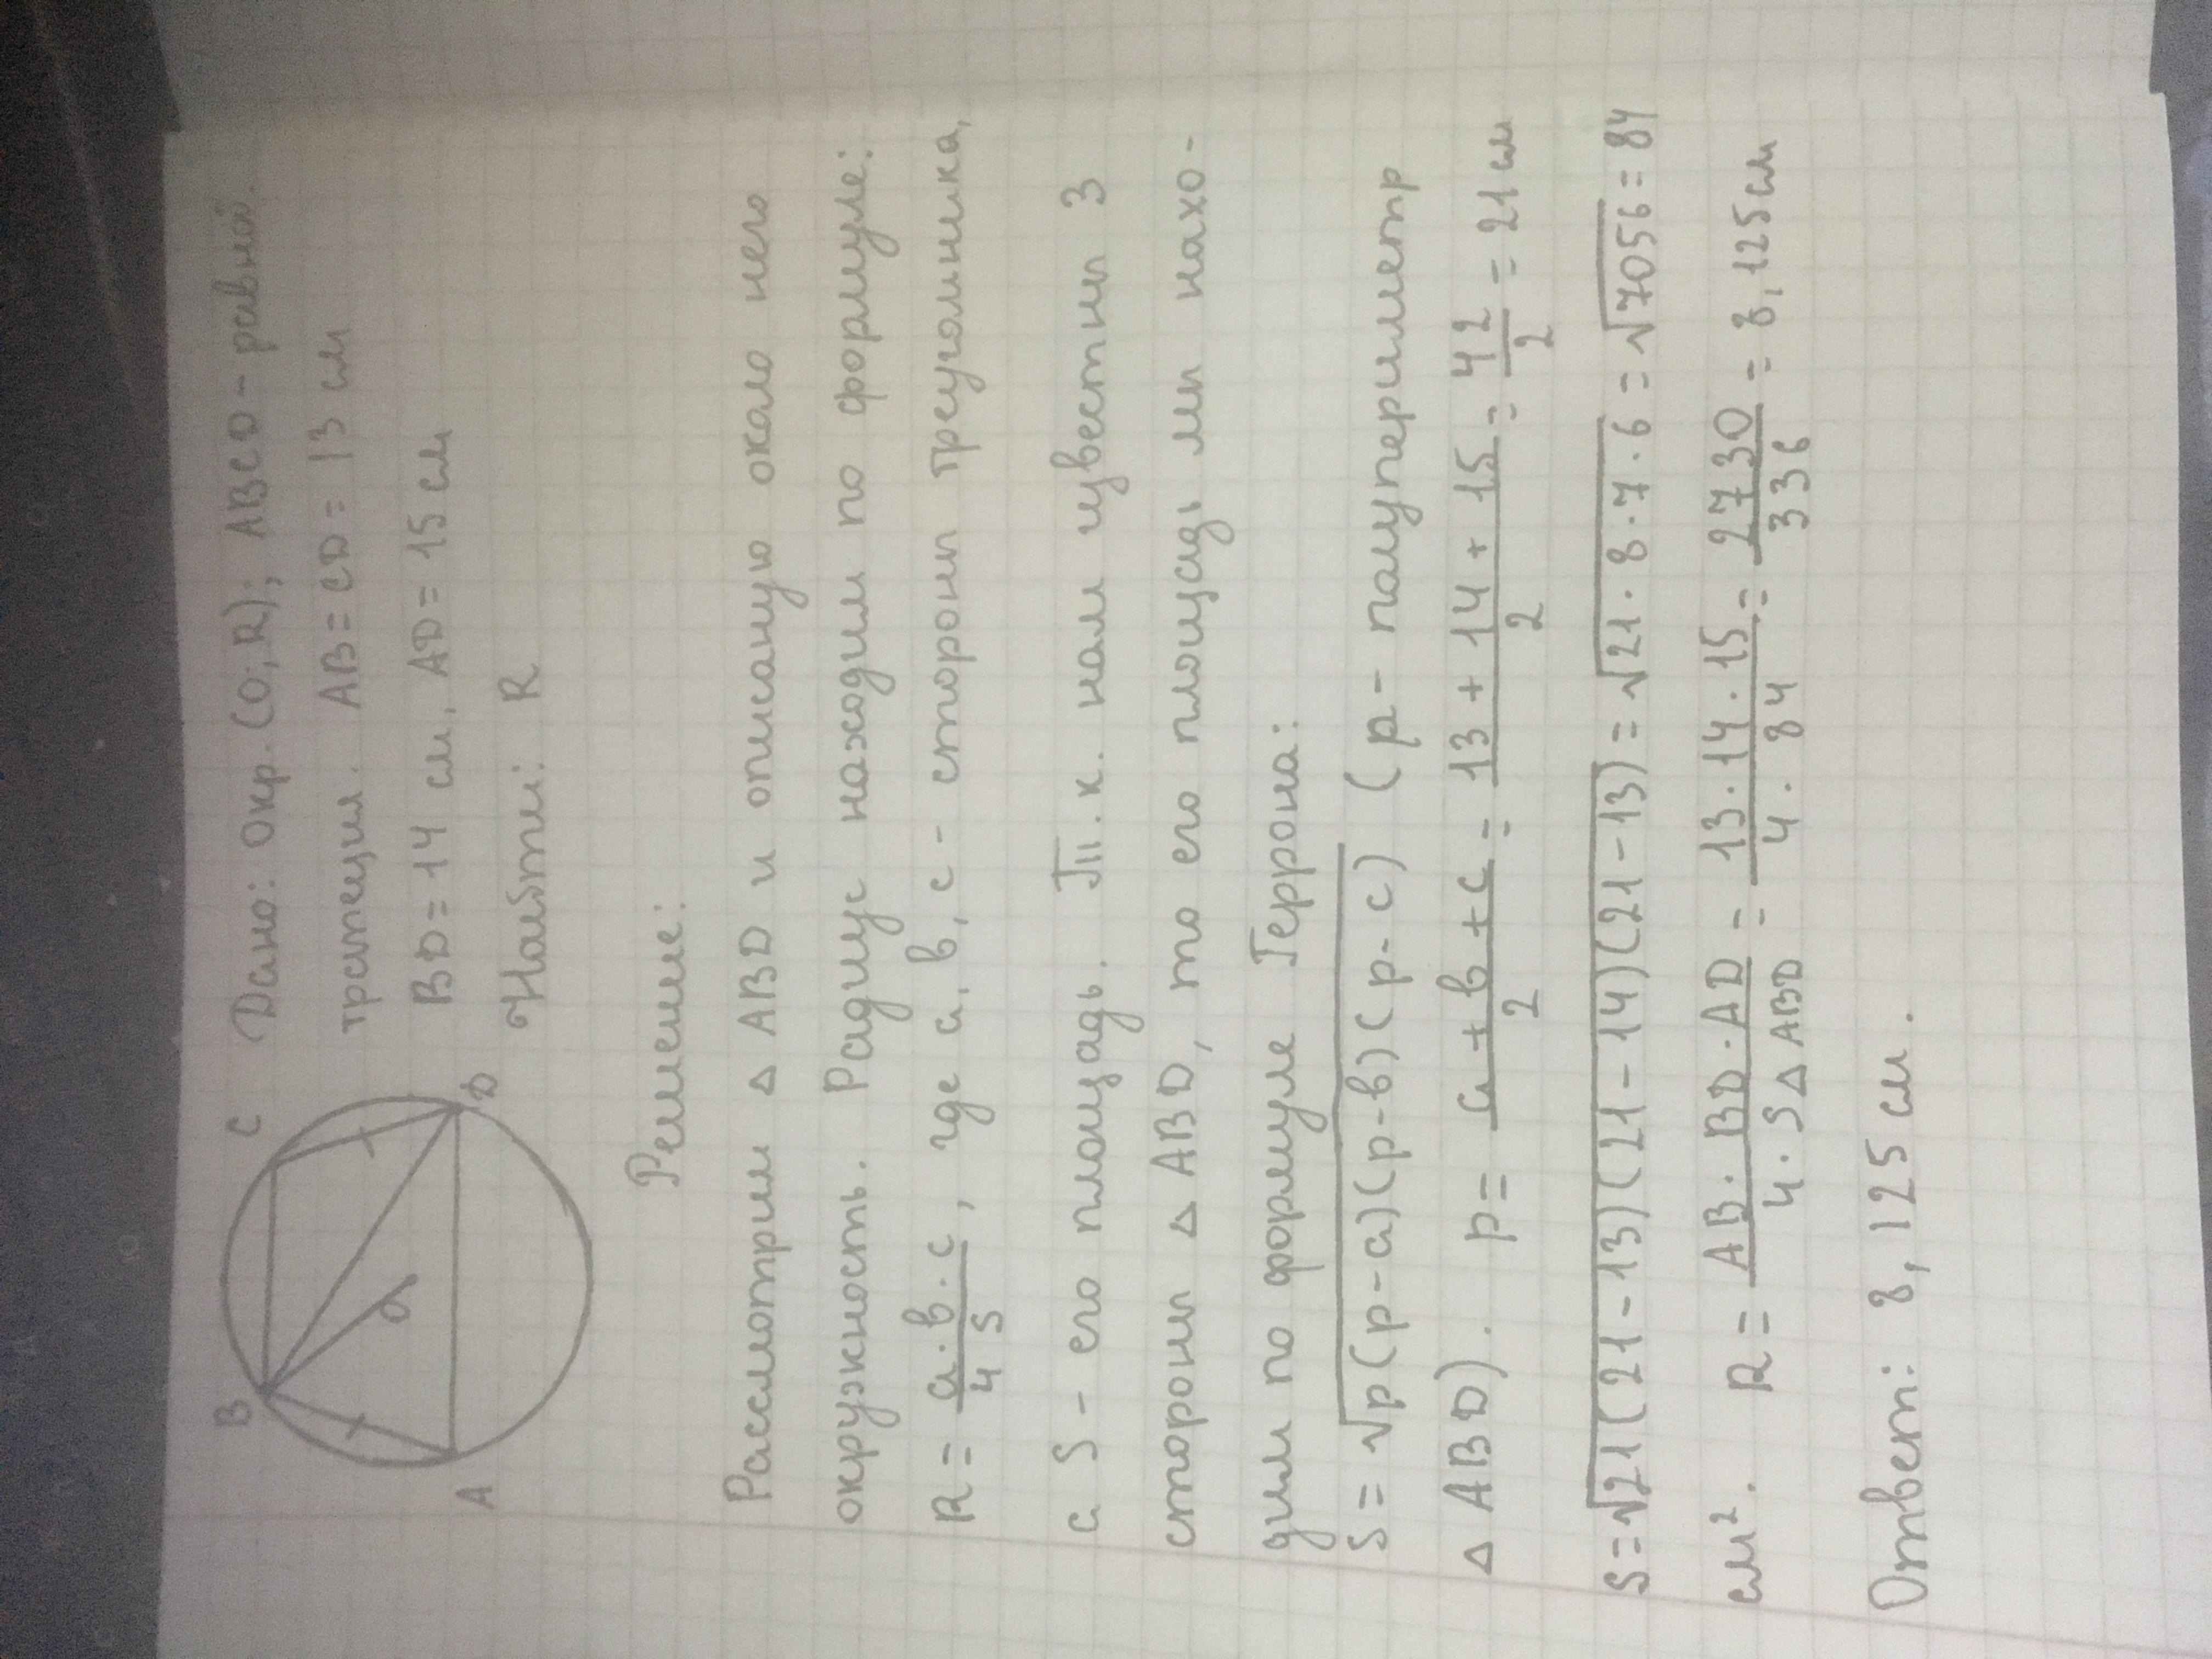 B
C
A
D
R
Дано: окр. (O; R); ABCD - равноб.
трапеция. AB = CD = 13 см
BD = 14 см, AD = 15 см
Найти: R
Решение:
Рассмотрим △ ABD и описаную около него
окружность. Радиус находим по формуле:
R = a·b·c/4S, где a, b, c - стороны треугольника,
а S - его площадь. Т.к. нам известны 3
стороны △ ABD, то его площадь мы нахо-
дим по формуле Геррона:
S = √p(p-a)(p-b)(p-c) (p - полупериметр
△ ABD). p = a+b+c/2 = 13+14+15/2 = 42/2 = 21 см
S = √21(21-13)(21-14)(21-13) = √21·8·7·6 = √7056 = 84
см². R = AB·BD·AD/4·S△ABD = 13·14·15/4·84 = 2730/336 = 8,125 см
Ответ: 8,125 см.